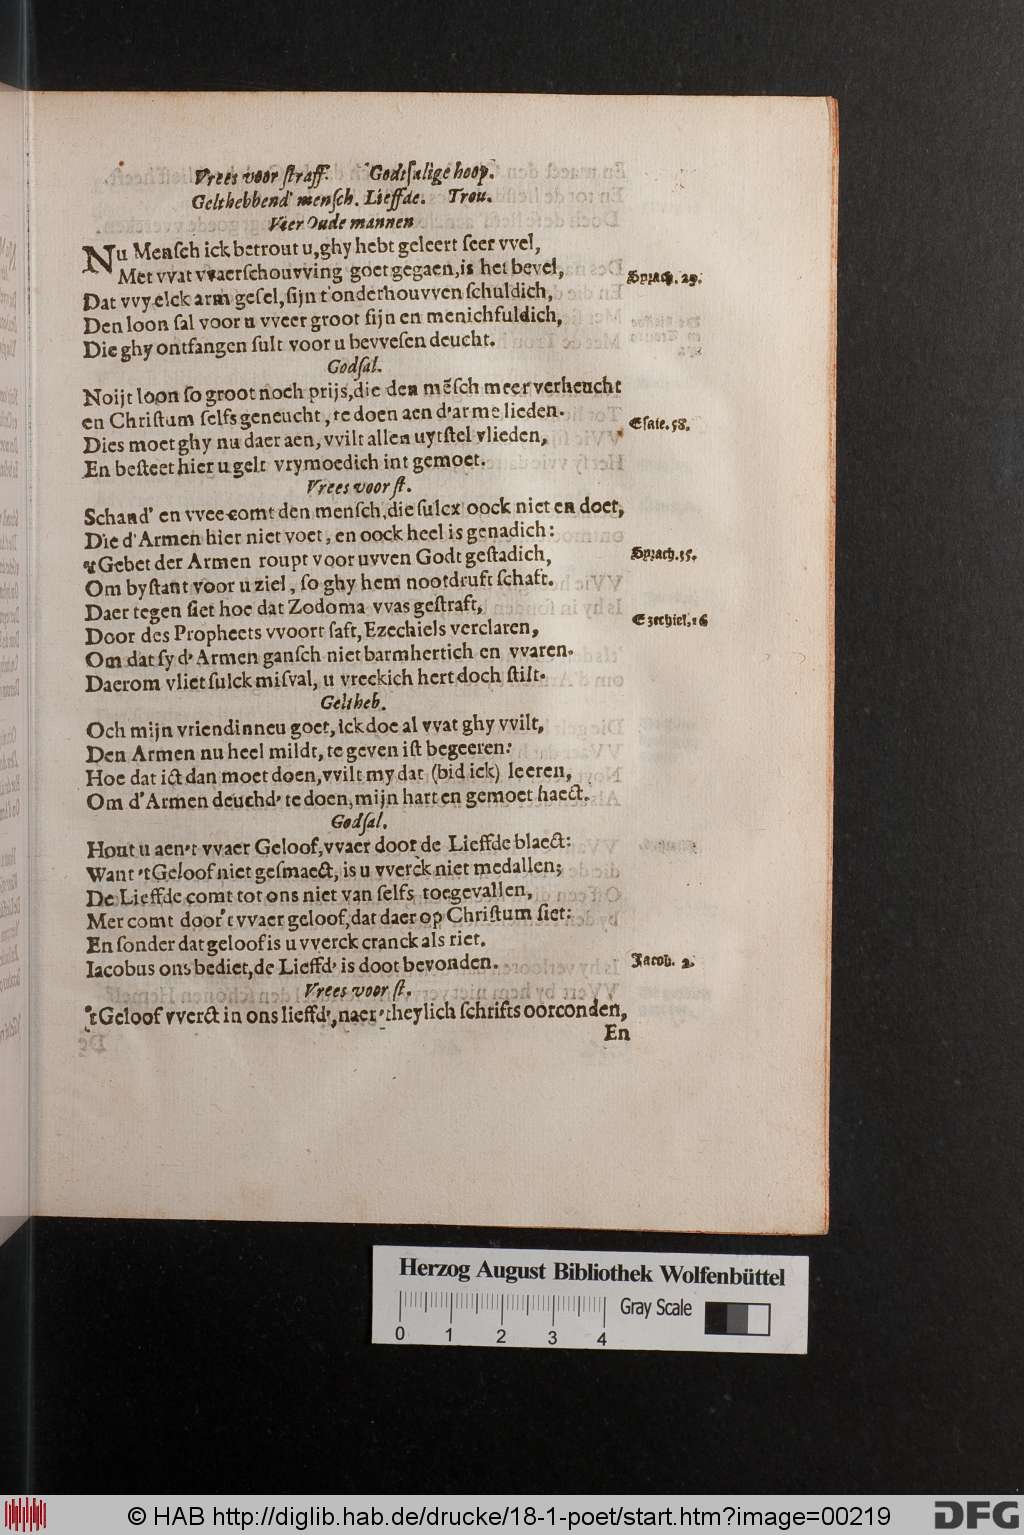 Vrees voor ſtraff. Godtſalige hoop.
Gelthebbend' menſch. Lieffde. Trou.
Vier Oude mannen
Nu Menſch ick betrout u, ghy hebt geleert ſeer vvel,
Met vvat vvaerſchouvving goet gegaen, is het bevel,
Sprach. 29.
Dat vvy elck arm geſel, ſijn t'onderhouvven ſchuldich,
Den loon ſal voor u vveer groot ſijn en menichfuldich,
Die ghy ontfangen ſult voor u bevveſen deucht.
Godſal.
Noijt loon ſo groot noch prijs, die den mēſch meer verheucht
en Chriſtum ſelfs geneucht, te doen aen d'arme lieden.
Eſaie. 58.
Dies moet ghy nu daer aen, vvilt allen uytſtel vlieden,
En beſteet hier u gelt vrymoedich int gemoet.
Vrees voor ſt.
Schand' en vvee comt den menſch, die ſulcx oock niet en doet,
Die d'Armen hier niet voet, en oock heel is genadich:
't Gebet der Armen roupt voor uvven Godt geſtadich,
Sprach. 35.
Om byſtant voor u ziel, ſo ghy hem nootdruft ſchaft.
Daer tegen ſiet hoe dat Zodoma vvas geſtraft,
Door des Propheets vvoort ſaft, Ezechiels verclaren,
Ezechiel. 16
Om dat ſy d'Armen ganſch niet barmhertich en vvaren.
Daerom vliet ſulck miſval, u vreckich hert doch ſtilt.
Geltheb.
Och mijn vriendinneu goet, ick doe al vvat ghy vvilt,
Den Armen nu heel mildt, te geven iſt begeeren:
Hoe dat ict dan moet doen, vvilt my dat (bid ick) leeren,
Om d'Armen deuchd' te doen, mijn hart en gemoet haect.
Godſal.
Hout u aen't vvaer Geloof, vvaer door de Lieffde blaect:
Want 't Geloof niet geſmaect, is u vverck niet medallen;
De Lieffde comt tot ons niet van ſelfs toegevallen,
Mer comt door't vvaer geloof, dat daer op Chriſtum ſiet:
En ſonder dat geloof is u vverck cranck als riet.
Iacobus ons bediet, de Lieffd' is doot bevonden.
Jacob. 2.
Vrees voor ſt.
't Geloof vverct in ons lieffd', naer 'theylich ſchrifts oorconden,
En
Herzog August Bibliothek Wolfenbüttel
Gray Scale
0 1 2 3 4
© HAB http://diglib.hab.de/drucke/18-1-poet/start.htm?image=00219
DFG